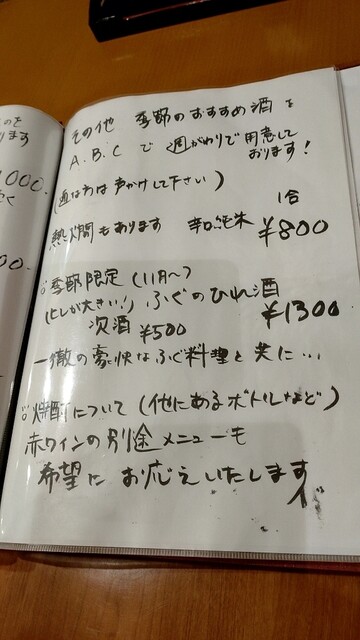 のを
ります
000.
く
00.
その他 季節のおすすめ酒を
A.B.Cで 週がわりで用意して
おります!
声かけして下さい)
熱燗もあります 辛口純米 1合 ¥800
季節限定 (11月〜)
(ヒレが大きい!) ふぐのひれ酒 ¥1300
次酒 ¥500
一徹の豪快なふぐ料理と共に…
焼酎について (他にあるボトルなど)
赤ワインの別途メニューも
希望に お応えいたします